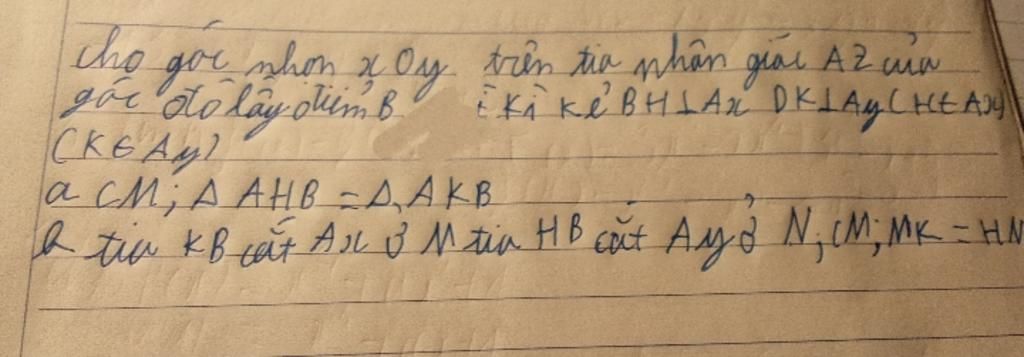 cho góc nhọn xOy trên tia phân giác AZ của
góc đó lấy điểm B kì kẻ BH⊥Ax DK⊥Ay (H∈Ax)
(K∈Ay)
a CM; Δ AHB = Δ AKB
b tia KB cắt Ax ở M tia HB cắt Ay ở N; CM; MK = HN